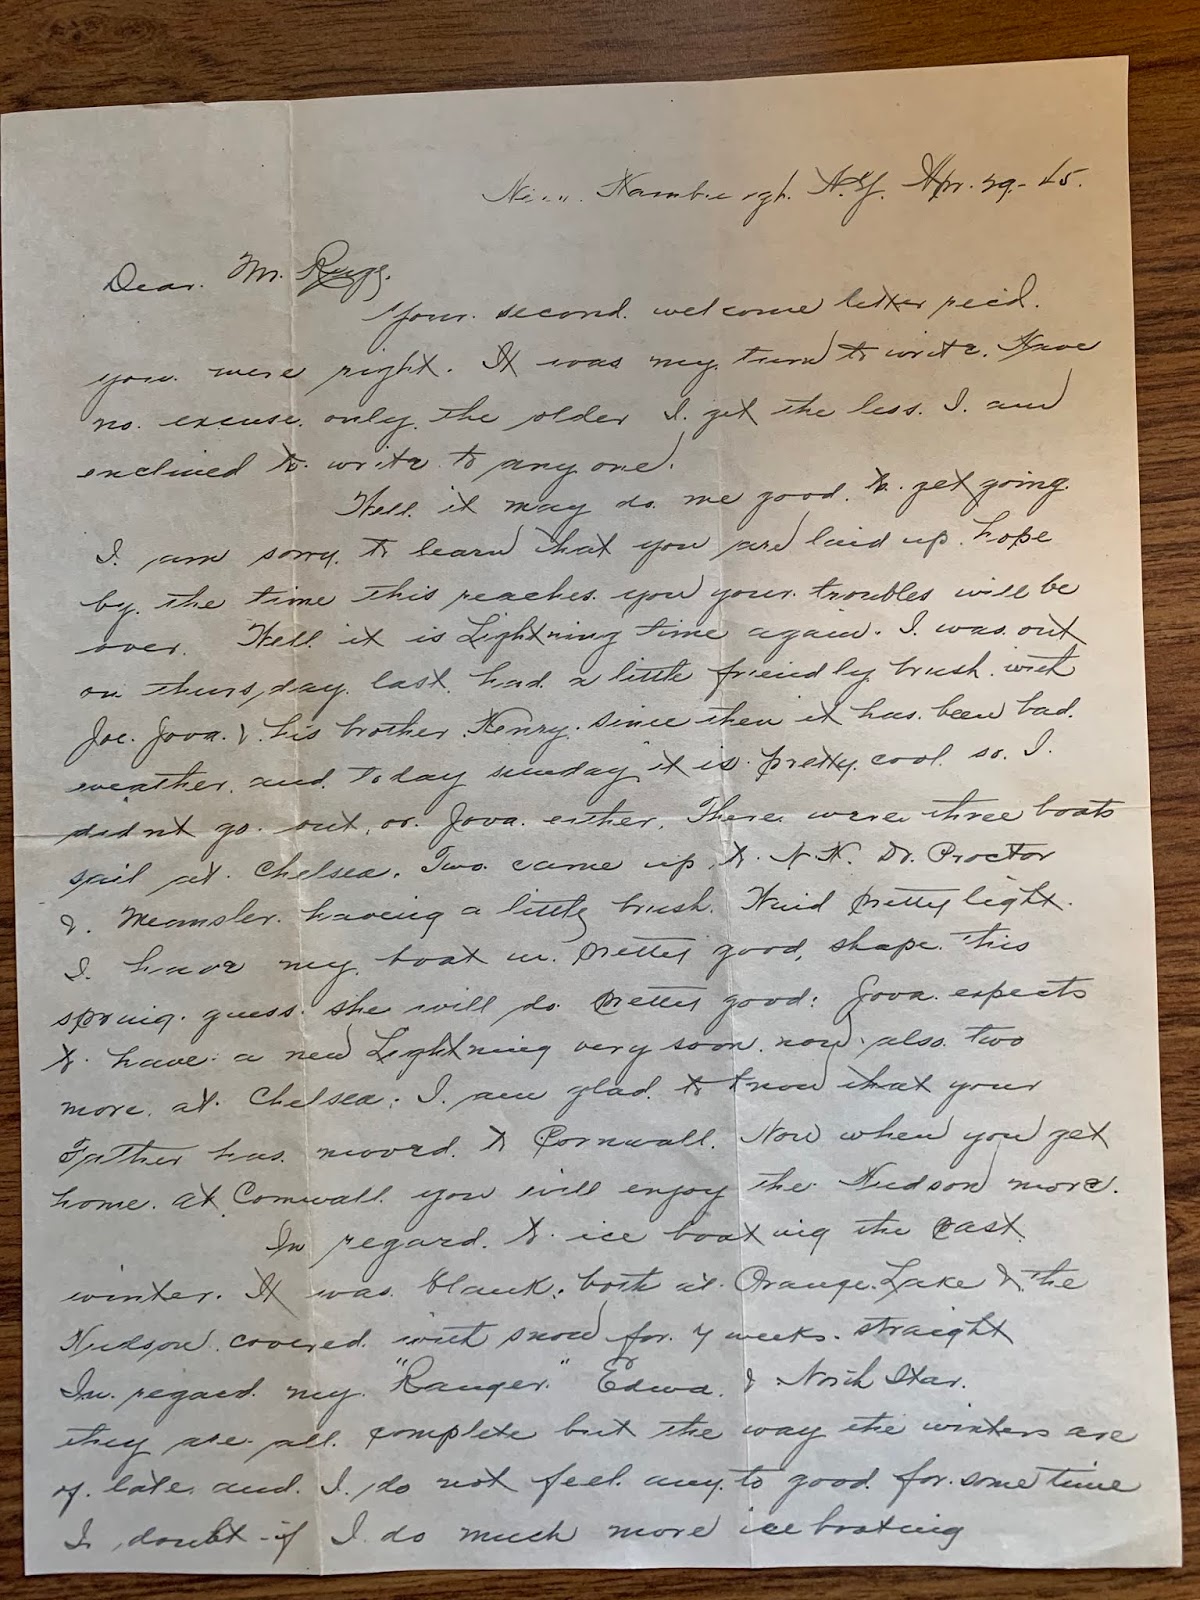 New Hamburgh. N.Y. Apr. 29-45.
Dear. Mr. Ruge.
Your. second. welcome letter rec'd.
you. were right. It was my turn to write. Have
no. excuse. only the older I. get the less. I. am
enclined to. write to any one.
Well. it may do. me good. to. get going.
I. am sorry. to learn that you are laid up. hope
by. the time this reaches. you your. troubles will be
over. Well. it is Lightning time again. I. was. out
on thurs,day. last. had. a little friendly brush. with
Joe. Jova. & his brother. Henry. since then it has. been bad.
weather. and. to day sunday it is. pretty. cool. so. I.
didnt go. out, or. Jova. either. There were three boats
sail at. Chelsea. Two. came up to. N.H. Dr. Proctor
& having a little brush. Wind pretty light.
I. have my. boat in. pretty good, shape. this
spring. guess. she will do. pretty good: Jova. expects
to. have. a new Lightning very soon. now. also. two
more. at. Chelsea; I. am glad. to know that your
Father has. moved. to Cornwall. Now when you get
home. at. Cornwall. you will enjoy the. Hudson more.
In regard. to. ice boating the past.
winter. It was. blank. both at. Orange. Lake & the
Hudson. covered. with snow for. 7 weeks. straight
In. regard. my. "Ranger." Edwa. & North Star.
they are. all. complete but the way the winters are
of. late. and. I. do not feel. any. to good. for. some time
I. doubt if I do much more ice boating